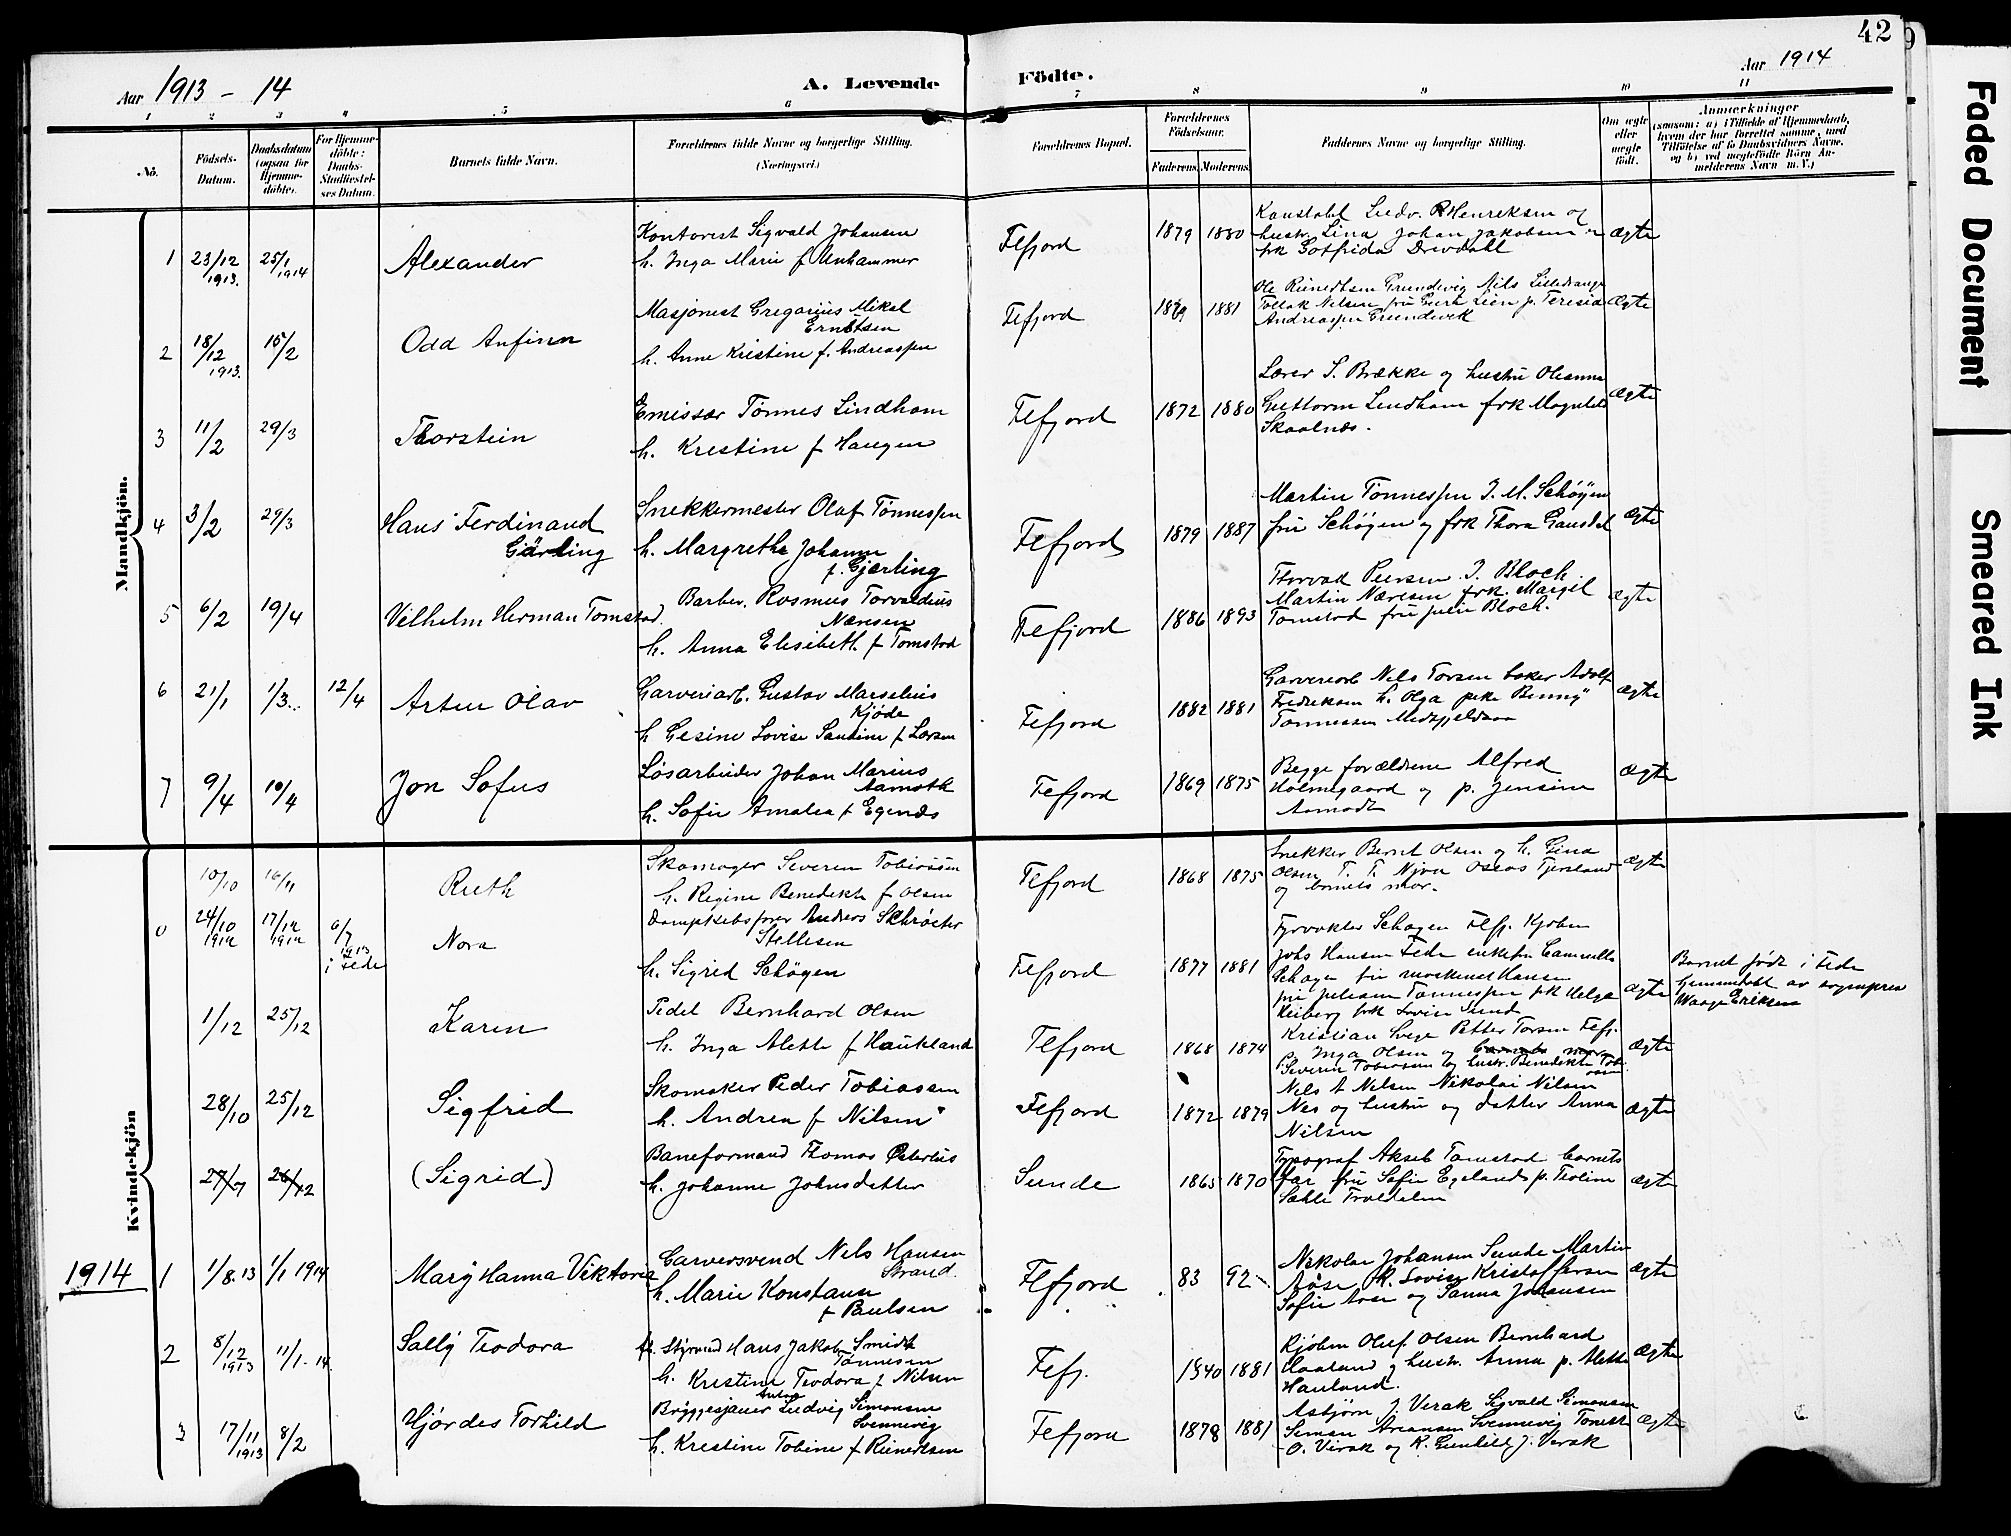 42
Aar 1913 - 14
A. Levende
Födte.
Aar 1914
1 2 3 4 5 6 7 8 9 10 11
No.
Födsels-
Datum.
Daabsdatum
(ogsaa for
Hjemme-
döbte).
For Hjemme-
döbte:
Daabs-
Stadfæstel-
ses Datum.
Barnets fulde Navn.
Forældrenes fulde Navne og borgerlige Stilling.
(Næringsvei.)
Forældrenes Bopæl.
Forældrenes
Födselsaar.
Faderens. Moderens.
Faddernes Navne og borgerlige Stilling.
Om ægte
eller
uægte
födt.
Anmærkninger
(saasom: a) i Tilfælde af Hjemmedaab,
hvem der har forrettet samme, med
Tilföielse af to Daabsvidners Navne.
og b) ved uægtefödte Börn An-
melderens Navn m. V.)
Mandkjön.
1 23/12 1913. 25/1 1914
Alexander
Kontorist Sigvald Johansen
h. Inga Marie f
Flefjord
1879 1880
Konstabel Ludv. Henriksen og
hustr. Lina Johan Jakobsen
frk Gotfrida Drevdahl
ægte
2 18/12 1913. 15/2
Odd Anfinn
Masjonist Gregorius Mikal
Erntsen
h. Anne Kristine f. Andreassen
Flefjord
1881
Ole Reinertsen Grundevig Nils
Tollak Nelsen fru p. Teresia
Andreassen Grundevik
ægte
3 11/2 29/3
Thorstein
Emissær Tønnes Lindham
h. Kristine f Haugen
Flefjord
1872 1880
Lærer S. Brække og hustru Oleanna
Guttorm Lindham frk Magnhild
Skaalnæs.
ægte
4 3/2 29/3
Hans Ferdinand
Gjärling
Snekkermester Olaf Tønnessen
h. Margrethe Johanne
f. Gjerling
Flefjord
1879 1887
Martin Tønnessen J. M. Schøyen
fru Schøyen og frk Thora Gausdal
ægte
5 6/2 19/4
Vilhelm Herman Tomstad.
Barber. Rasmus Torvaldius
Næresen
h. Anna Elisabeth f Tomstad
Flefjord
1886 1893
Thorvad Peersen J. Bloch
Martin Næresen frk. Margit
Tomstad fru Bloch.
ægte
6 21/1 1/3 12/4
Artur Olav
Garveriarb. Gustav Marselius
Kjøde
h Gesine Lovise Sandine f Larsen
Flefjord
1882 1881
Garveriarb Nils Torsen baker Adolf
Fredriksen h. Olga pike Benny
Tønnessen
ægte
7 9/4 10/4
Jon Sofus
Løsarbeider Johan Marius
Aamoth
h. Sofie Amalia f Egenæs
Flefjord
1869 1875
Begge forældrene Alfred
Holmegaard og p. Jensine
Aamodt
ægte
Kvindekjön
10/10 16/11
Ruth
Skomager Severin Tobiassen
h. Regine Benedikte f Olsen
Flefjord
1868 1875
Snekker Bernt Olsen og h. Gina
Olsen T. T. Njøa Oseas Tjersland
og barnets mor.
ægte
0 24/10 1912 17/12 1912 6/7 1913 i Fede
Nora
Dampskibsfører Anders Schrøeter
Stellesen
h. Sigrid Schøyen
Flefjord
1877 1881
Fyrvokter Schøyen Flefj. Kjøbm
Johs Hansen Fede enkefru Camilla
Schøyen fru Hansen
fru Tønnessen frk Helga
frk Lovise Lund
ægte
Barnet født i Fede
hjemmedøbt av sogneprest
Waage Eriksen
1/12 25/12
Karen
Pedel Bernhard Olsen
h. Inga Alette f Haukland
Flefjord
1868 1874
Kristian Svege Petter Torsen Flefj.
p. Inga Olsen og barnets mor
Severin Tobiassen og hustr. Benedikte Tobi
assen
ægte
28/10 25/12
Sigfrid
Skomaker Peder Tobiassen
h. Andrea f Nilsen
Flefjord
1872 1879
Nils A Nelsen Nikolai Nilsen
Nes og hustru og datter Anna
Nilsen
ægte
27/7 26/12
(Sigrid)
Baneformand Thomas Osterlus
h. Johanne Johnsdatter
Sunde
1865 1870
Typograf Aksel Tomstad barnets
far fru Sofie Egeland p. Teoline
Trældalen
ægte
1914
1 1/8.13 1/1 1914
Mary Hanna Viktoria
Garversvend Nils Hansen
Strand.
h. Marie Konstanse
f Paulsen
Flefjord
83 92
Nikolai Johansen Sunde Martin
Aase K. Lovise Kristoffersen
Sofie Aase og Sanna Johansen
ægte
2 8/12 1913 11/1-14.
Sally Teodora
Styrmd Hans Jakob Smidth
Tønnesen
h. Kristine Teodora f Nilsen
Flefj.
1840 1881
Kjøbm Oluf Olsen Bernhard
Haaland og hustr. Anna p. Alette
Hauland.
ægte
3 17/11 1913 8/2
Hjørdes Torhild
Bryggesjauer Ludvig Simonsen
Svennevig
h. Kristine Tobine f Reinertsen
Flefjord
1878 1881
Asbjørn J. Verak Sigvald Simonsen
Simon Svennevig
O. Virak og K. Gunhild J. Verak
ægte
Faded Document
Smeared Ink